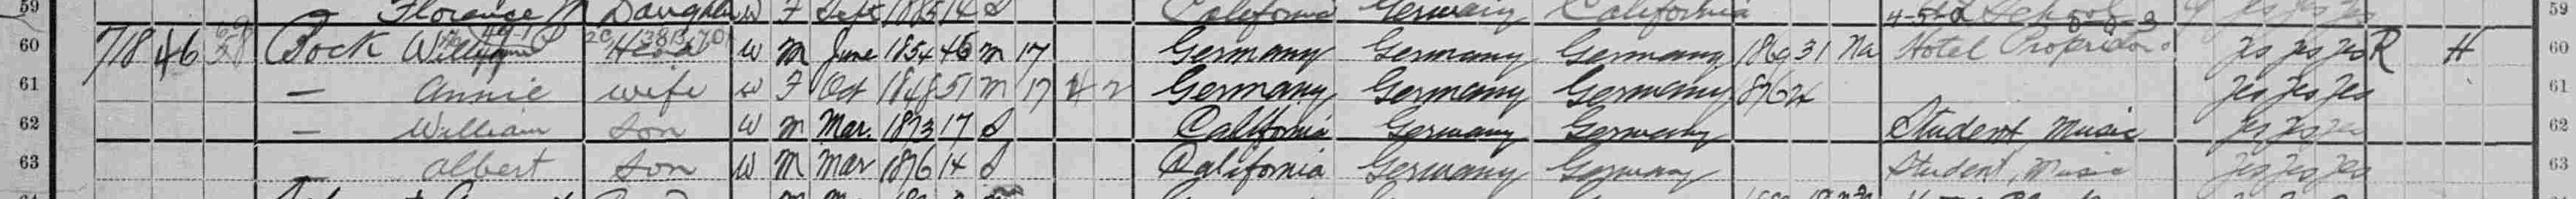 59 Florence Daughter W F Sept 1885 14 S California Germany California School 59
60 718 46 Bock William Head W M June 1854 46 M 17 Germany Germany Germany 1869 31 Na Hotel Proprietor yes yes yes R H 60
61 — Annie wife W F Oct 1848 51 M 17 4 2 Germany Germany Germany 1876 24 yes yes yes 61
62 — William Son W M Mar. 1873 17 S California Germany Germany Student, Music yes yes yes 62
63 Albert Son W M Mar 1876 14 S California Germany Germany Student, Music yes yes yes 63